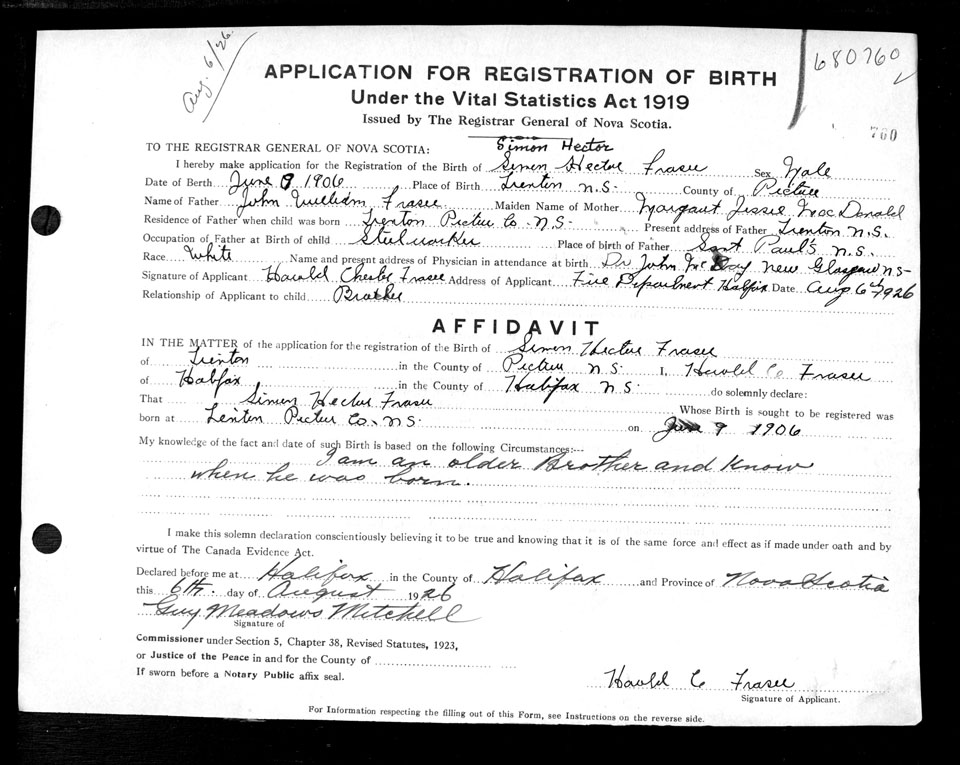 Aug. 6/26.
680760
760
APPLICATION FOR REGISTRATION OF BIRTH
Under the Vital Statistics Act 1919
Issued by The Registrar General of Nova Scotia.
Simon Hector
TO THE REGISTRAR GENERAL OF NOVA SCOTIA:
I hereby make application for the Registration of the Birth of Simon Hector Fraser Sex Male
Date of Berth June 9 1906 Place of Birth Trenton N.S. County of Pictou
Name of Father John William Fraser Maiden Name of Mother Margaret Jessie MacDonald
Residence of Father when child was born Trenton Pictou Co. N.S. Present address of Father Trenton N.S.
Occupation of Father at Birth of child Steelworker Place of birth of Father Sant Paul's N.S.
Race White Name and present address of Physician in attendance at birth Dr John Mc Day New Glasgow NS
Signature of Applicant Harold Fraser Address of Applicant Fire Department Halifax Date Aug 6th 1926
Relationship of Applicant to child Brother
AFFIDAVIT
IN THE MATTER of the application for the registration of the Birth of Simon Hector Fraser
of Trenton in the County of Pictou N.S. I, Harold C Fraser
of Halifax in the County of Halifax N.S. do solemnly declare:
That Simon Hector Fraser Whose Birth is sought to be registered was
born at Trenton Pictou Co. N.S. on June 9 1906
My knowledge of the fact and date of such Birth is based on the following Circumstances:--
I am an older Brother and know
when he was born.
I make this solemn declaration conscientiously believing it to be true and knowing that it is of the same force and effect as if made under oath and by
virtue of The Canada Evidence Act.
Declared before me at Halifax in the County of Halifax and Province of Nova Scotia
this 6th. day of August 1926
Guy Meadows Mitchell
Signature of
Commissioner under Section 5, Chapter 38, Revised Statutes, 1923,
or Justice of the Peace in and for the County of
If sworn before a Notary Public affix seal.
Harold C Fraser
Signature of Applicant.
For Information respecting the filling out of this Form, see Instructions on the reverse side.